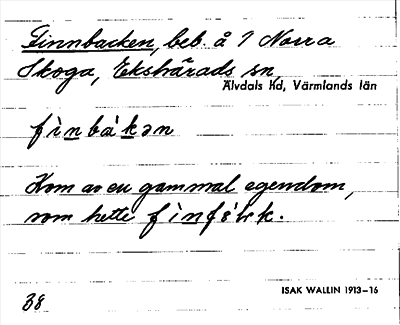 Finnbacken, beb. å 7 Norra
Skoga, Ekshärads sn,
Älvdals hd, Värmlands län
fìnbákən
Kom av en gammal egendom,
som hette
ISAK WALLIN 1913–16
38